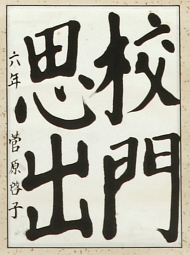 校門
思出
六年 菅原啓子